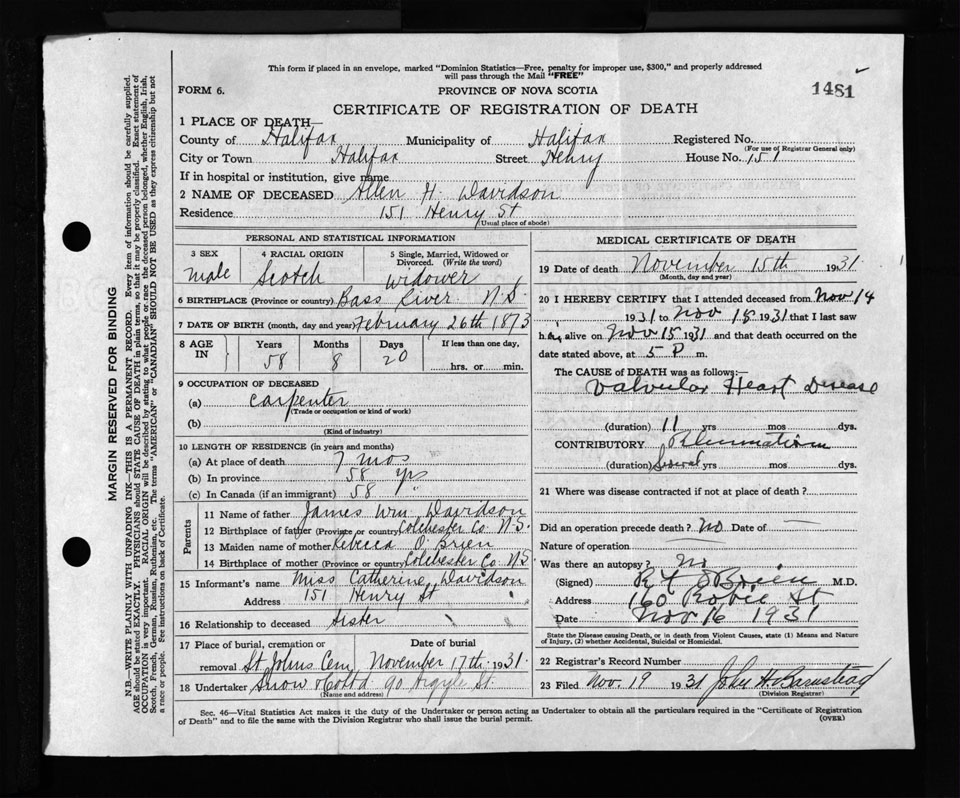 This form if placed in an envelope, marked "Dominion Statistics—Free, penalty for improper use, $300," and properly addressed
will pass through the Mail "FREE"
FORM 6. PROVINCE OF NOVA SCOTIA 1481
CERTIFICATE OF REGISTRATION OF DEATH
1 PLACE OF DEATH—
County of Halifax Municipality of Halifax Registered No.
(For use of Registrar General only)
City or Town Halifax Street Henry House No. 151
If in hospital or institution, give name
2 NAME OF DECEASED Allen H. Davidson
Residence 151 Henry St
(Usual place of abode)
PERSONAL AND STATISTICAL INFORMATION
3 SEX 4 RACIAL ORIGIN 5 Single, Married, Widowed or
Divorced. (Write the word)
male Scotch widower
6 BIRTHPLACE (Province or country) Bass River N.S
7 DATE OF BIRTH (month, day and year) February 26th 1873
8 AGE IN Years Months Days If less than one day,
58 8 20 hrs. or min.
9 OCCUPATION OF DECEASED
(a) carpenter
(Trade or occupation or kind of work)
(b)
(Kind of industry)
10 LENGTH OF RESIDENCE (in years and months)
(a) At place of death 7 mos
(b) In province 58 yrs
(c) In Canada (if an immigrant) 58 "
Parents
11 Name of father James Wm Davidson
12 Birthplace of father (Province or country) Colchester Co N.S.
13 Maiden name of mother Rebecca O'Brien
14 Birthplace of mother (Province or country) Colchester Co. N.S
15 Informant's name Miss Catherine Davidson
Address 151 Henry St
16 Relationship to deceased Sister
17 Place of burial, cremation or Date of burial
removal St Johns Cem November 17th 1931
18 Undertaker Snow & Co Ltd 90 Argyle St.
(Name and address)
MEDICAL CERTIFICATE OF DEATH
19 Date of death November 15th 1931
(Month, day and year)
20 I HEREBY CERTIFY that I attended deceased from Nov 14
1931 to Nov 15 1931 that I last saw
him alive on Nov 15 1931 and that death occurred on the
date stated above, at 5 P m.
The CAUSE of DEATH was as follows:—
Valvular Heart Disease
(duration) 11 yrs mos dys.
CONTRIBUTORY Rheumatism
(duration) Several yrs mos dys.
21 Where was disease contracted if not at place of death?
Did an operation precede death? no Date of —
Nature of operation —
Was there an autopsy? No
(Signed) O'Brien M.D.
Address 160 Robie St
Date Nov 16 1931
State the Disease causing Death, or in death from Violent Causes, state (1) Means and Nature
of Injury, (2) whether Accidental, Suicidal or Homicidal.
22 Registrar's Record Number
23 Filed Nov. 19 1931 John H Barnstead
(Division Registrar)
Sec. 46—Vital Statistics Act makes it the duty of the Undertaker or person acting as Undertaker to obtain all the particulars required in the "Certificate of Registration
of Death" and to file the same with the Division Registrar who shall issue the burial permit.
(OVER)
MARGIN RESERVED FOR BINDING
N.B.—WRITE PLAINLY WITH UNFADING INK—THIS IS A PERMANENT RECORD. Every item of information should be carefully supplied.
AGE should be stated EXACTLY. PHYSICIANS should STATE CAUSE OF DEATH in plain terms, so that it may be properly classified. Exact statement of
OCCUPATION is very important. RACIAL ORIGIN will be described by stating to what people or race the deceased person belonged, whether English, Irish,
Scotch, French, German, Russian, Ruthenian, etc. The terms "AMERICAN" or "CANADIAN" SHOULD NOT BE USED as they express citizenship but not
a race or people. See instructions on back of Certificate.